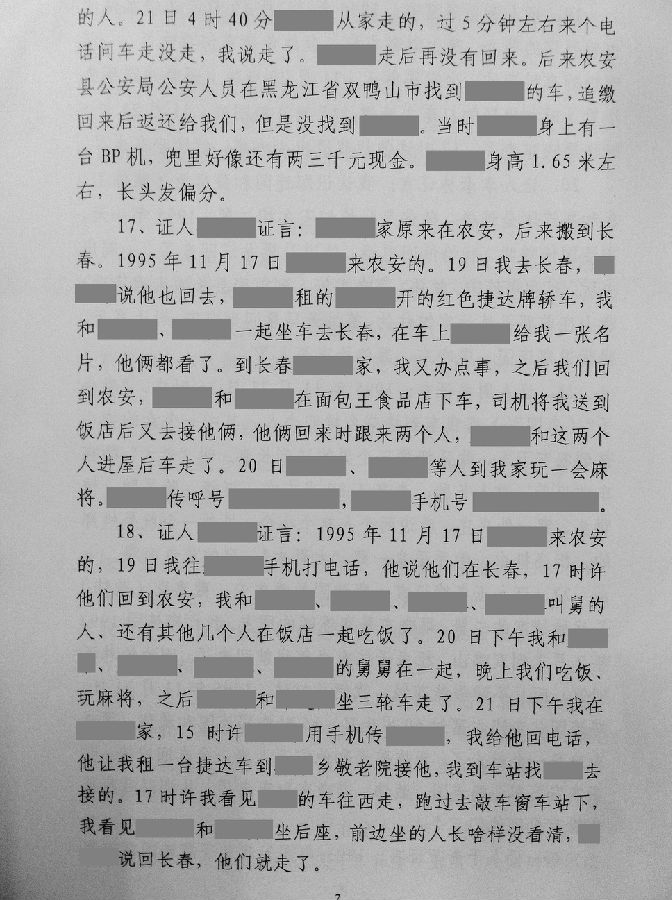 的人。21日4时40分 从家走的，过5分钟左右来个电
话问车走没走，我说走了。 走后再没有回来。后来农安
县公安局公安人员在黑龙江省双鸭山市找到 的车，追缴
回来后返还给我们，但是没找到 。当时 身上有一
台BP机，兜里好像还有两三千元现金。 身高1.65米左
右，长头发偏分。
17、证人 证言： 家原来在农安，后来搬到长
春。1995年11月17日 来农安的。19日我去长春，
说他也回去， 租的 开的红色捷达牌轿车，我
和 、 一起坐车去长春，在车上 给我一张名
片，他俩都看了。到长春 家，我又办点事，之后我们回
到农安， 和 在面包王食品店下车，司机将我送到
饭店后又去接他俩，他俩回来时跟来两个人， 和这两个
人进屋后车走了。20日 、 等人到我家玩一会麻
将。 传呼号 ， 手机号 。
18、证人 证言：1995年11月17日 来农安
的，19日我往 手机打电话，他说他们在长春，17时许
他们回到农安，我和 、 、 、 叫舅的
人、还有其他几个人在饭店一起吃饭了。20日下午我和
、 、 、 的舅舅在一起，晚上我们吃饭、
玩麻将，之后 和 坐三轮车走了。21日下午我在
家，15时许 用手机传 ，我给他回电话，
他让我租一台捷达车到 乡敬老院接他，我到车站找 去
接的。17时许我看见 的车往西走，跑过去敲车窗车站下，
我看见 和 坐后座，前边坐的人长啥样没看清，
说回长春，他们就走了。
7